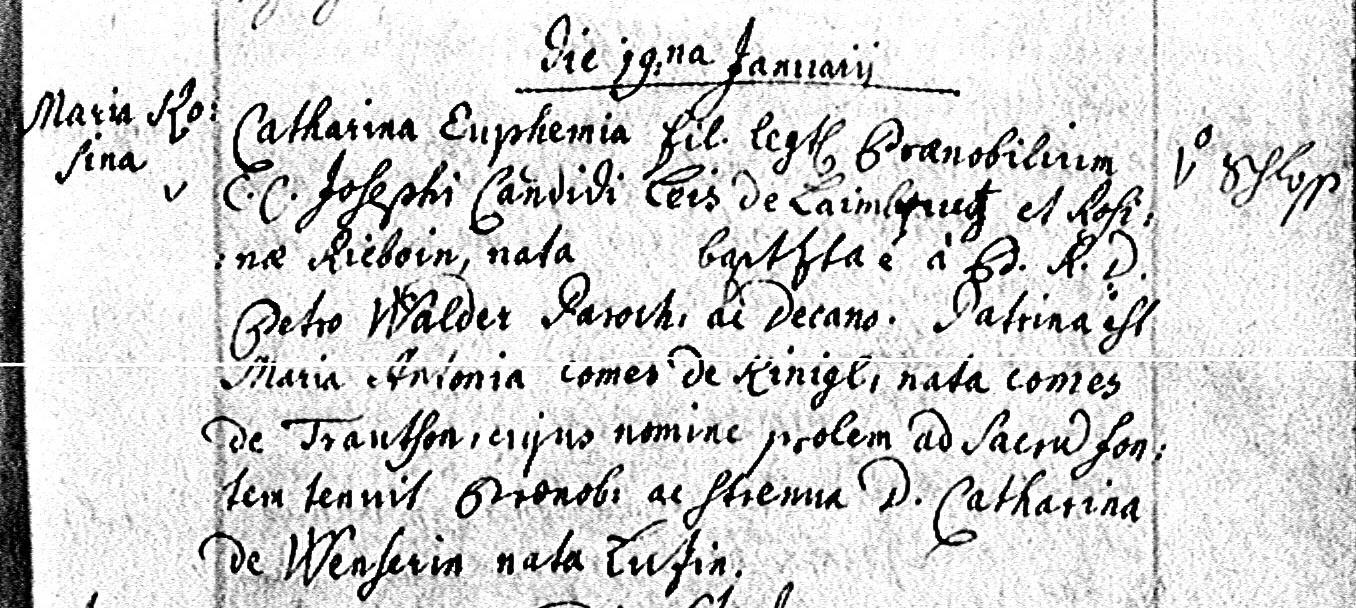 Die 19.na Januarij
Maria Ro:
sina
Catharina Euphemia fil. legt. Prænobilium
C. C. Josephi Candidi Leis de Laimburg et Rosi:
:næ Rieboin, nata baptista è à Pd. R. D.
Petro Walder Paroch. ac Decano. Patrina est
Maria Antonia comes de Kinigl, nata comes
de Trautson, cujus nomine prolem ad Sacrū fon:
tem tenuit Prænob: ac strenua D. Catharina
de Wenserin nata Lutzin.
V° Schloss